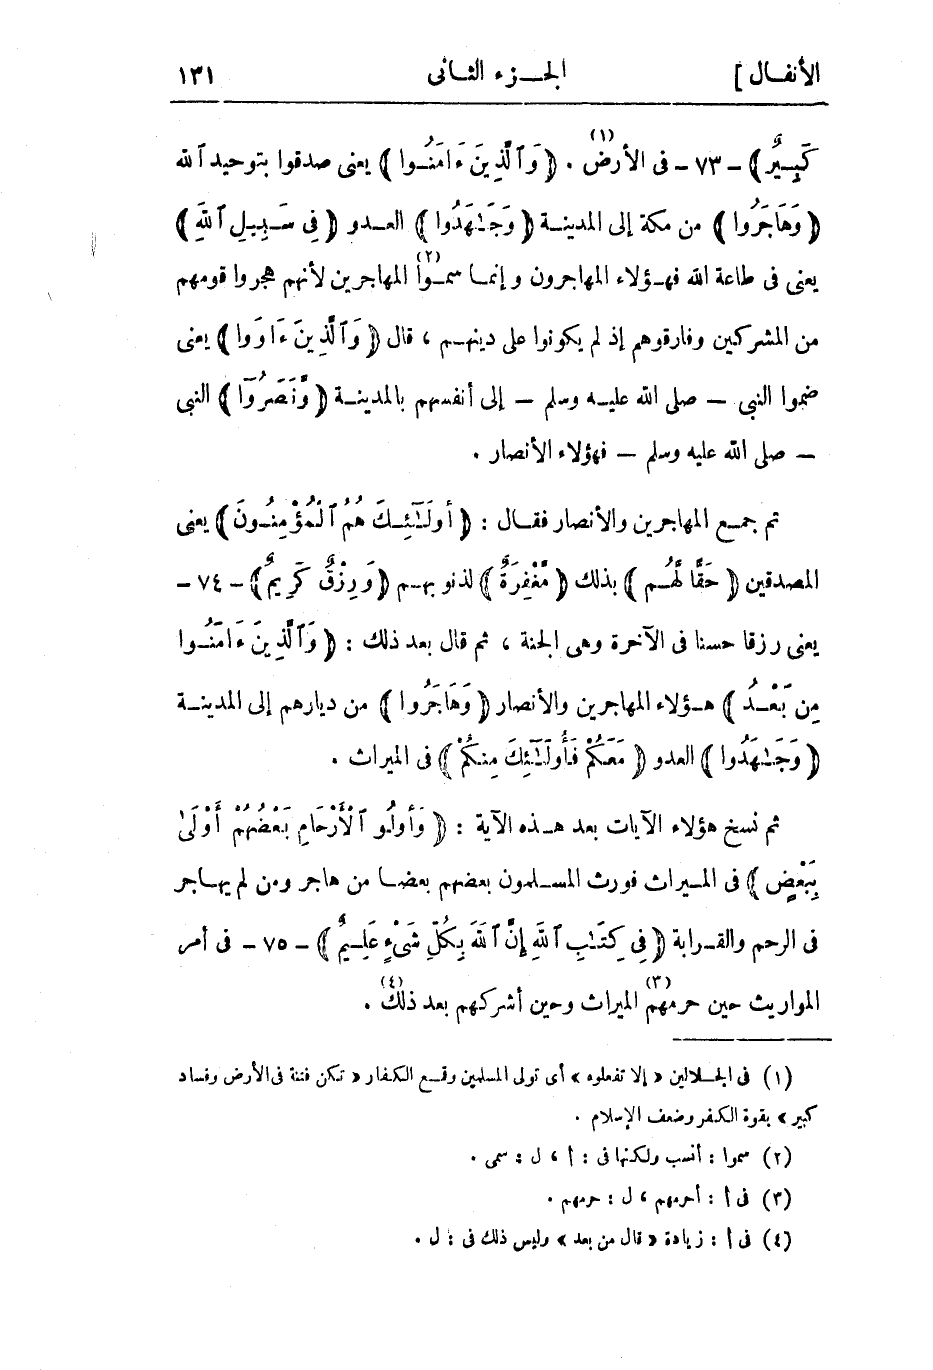 الأنفال] الجزء الثانى ١٣١
كَبِيرٌ﴾ - ٧٣ - فى الأرض (١) . ﴿وَٱلَّذِينَ ءَامَنُوا﴾ يعنى صدقوا بتوحيد الله
﴿وَهَاجَرُوا﴾ من مكة إلى المدينة ﴿وَجَٰهَدُوا﴾ العدو ﴿فِى سَبِيلِ ٱللَّهِ﴾
يعنى فى طاعة الله فهؤلاء المهاجرون وإنما سموا (٢) المهاجرين لأنهم هجروا قومهم
من المشركين وفارقوهم إذ لم يكونوا على دينهم ، قال ﴿وَٱلَّذِينَ ءَاوَوا﴾ يعنى
ضموا النبى — صلى الله عليه وسلم — إلى أنفسهم بالمدينة ﴿وَّنَصَرُوٓا﴾ النبى
— صلى الله عليه وسلم — فهؤلاء الأنصار .
ثم جمع المهاجرين والأنصار فقال : ﴿أُولَٰٓئِكَ هُمُ ٱلْمُؤْمِنُونَ﴾ يعنى
المصدقين ﴿حَقًّا لَّهُم﴾ بذلك ﴿مَّغْفِرَةٌ﴾ لذنوبهم ﴿وَرِزْقٌ كَرِيمٌ﴾ - ٧٤ -
يعنى رزقا حسنا فى الآخرة وهى الجنة ، ثم قال بعد ذلك : ﴿وَٱلَّذِينَ ءَامَنُوا
مِن بَعْدُ﴾ هؤلاء المهاجرين والأنصار ﴿وَهَاجَرُوا﴾ من ديارهم إلى المدينة
﴿وَجَٰهَدُوا﴾ العدو ﴿مَعَكُمْ فَأُولَٰٓئِكَ مِنكُمْ﴾ فى الميراث .
ثم نسخ هؤلاء الآيات بعد هذه الآية : ﴿وَأُولُو ٱلْأَرْحَامِ بَعْضُهُمْ أَوْلَىٰ
بِبَعْضٍ﴾ فى الميراث فورث المسلمون بعضهم بعضا من هاجر ومن لم يهاجر
فى الرحم والقرابة ﴿فِى كِتَٰبِ ٱللَّهِ إِنَّ ٱللَّهَ بِكُلِّ شَىْءٍ عَلِيمٌ﴾ - ٧٥ - فى أمر
المواريث حين حرمهم (٣) الميراث وحين أشركهم بعد ذلك (٤) .
(١) فى الجلالين « إلا تفعلوه » أى تولى المسلمين وقمع الكفار « تكن فتنة فى الأرض وفساد
كبير » بقوة الكفر وضعف الإسلام .
(٢) سموا : أنسب ولكنها فى : أ ، ل : سمى .
(٣) فى أ : أحرمهم ، ل : حرمهم .
(٤) فى أ : زيادة « قال من بعد » وليس ذلك فى : ل .